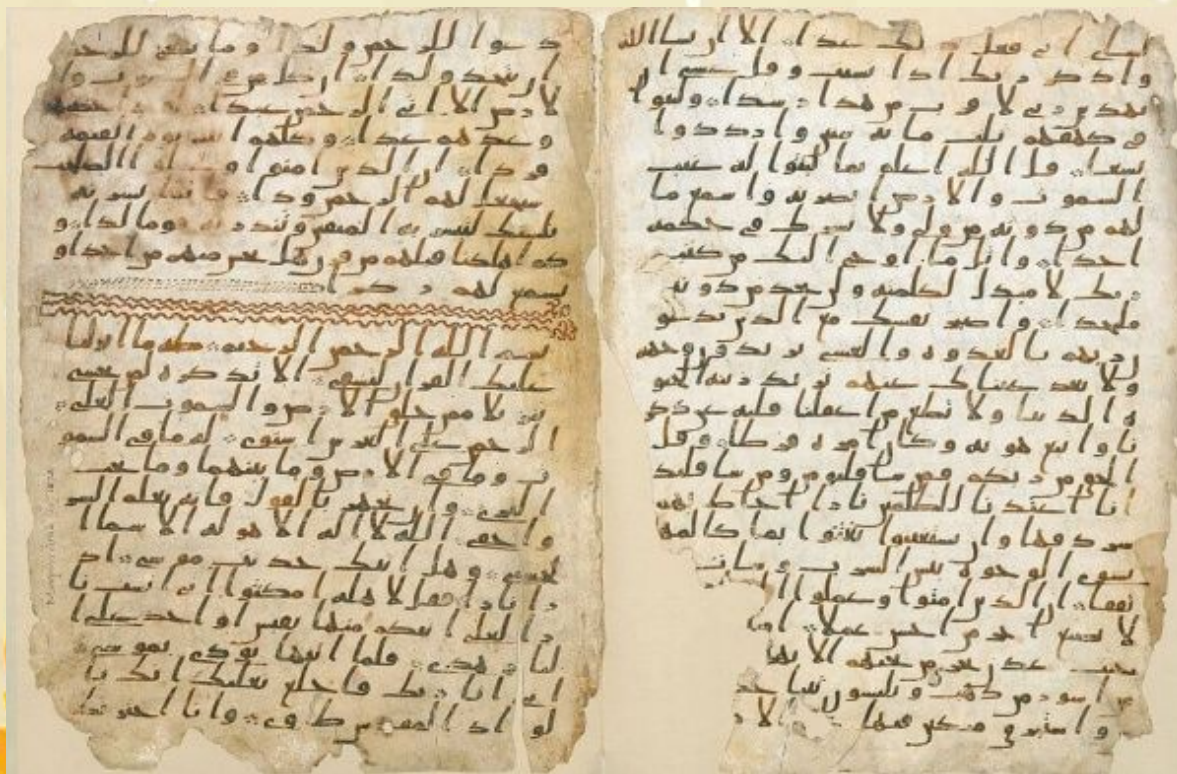 لشاى انى فعل ذلك غدا الا ان يشا الله
واذكر ربك اذا نسيت وقل عسى ان
يهدين ربى لاقرب من هذا رشدا ولبثوا
فى كهفهم ثلث مائة سنين وازدادوا
تسعا قل الله اعلم بما لبثوا له غيب
السموت والارض ابصر به واسمع ما
لهم من دونه من ولى ولا يشرك فى حكمه
احدا واتل ما اوحى اليك من كتب
ربك لا مبدل لكلمته ولن تجد من دونه
ملتحدا واصبر نفسك مع الذين يدعو
ن ربهم بالغدوه والعشى يريدون وجهه
ولا تعد عيناك عنهم تريد زينه الحيو
ه الدنيا ولا تطع من اغفلنا قلبه عن ذكر
نا واتبع هويه وكان امره فرطا وقل
الحق من ربكم فمن شا فليومن ومن شا فليكفر
انا اعتدنا للظلمين نارا احاط بهم
سردقها وان يستغيثوا يغثوا بما كالمهل
يشوى الوجوه بئس الشرب وسات
مرتفقا ان الذين امنوا وعملوا
لا نضيع اجر من احسن عملا
جنت عدن تجرى من تحتهم الانها
من اسور من ذهب ويلبسون ثيابا
واستبرق متكين فيها
دعوا للرحمن ولدا وما ينبغى للرحمن
ان يتخذ ولدا ان كل من فى السموت وا
لارض الا اتى الرحمن عبدا لقد احصيهم
وعدهم عدا وكلهم اتيه يوم القيمه
فردا ان الذين امنوا وعملوا الصلحت
سيجعل لهم الرحمن ودا فانما يسرنه
بلسنك لتبشر به المتقين وتنذر به قوما لدا و
كم اهلكنا قبلهم من قرن هل تحس منهم من احد او
تسمع لهم ركزا
بسم الله الرحمن الرحيم طه ما انزلنا
عليك القران لتشقى الا تذكره لمن يخشى
تنزيلا ممن خلق الارض والسموت العلى
الرحمن على العرش استوى له ما فى السمو
ت وما فى الارض وما بينهما وما تحت
الثرى وان تجهر بالقول فانه يعلم السر
واخفى الله لا اله الا هو له الاسما ا
لحسنى وهل اتيك حديث موسى اذ
را نارا فقال لاهله امكثوا انى انست نا
را لعلى اتيكم منها بقبس او اجد على ا
لنار هدى فلما اتيها نودى يموسى
انى انا ربك فاخلع نعليك انك با
لواد المقدس طوى وانا اخترتك